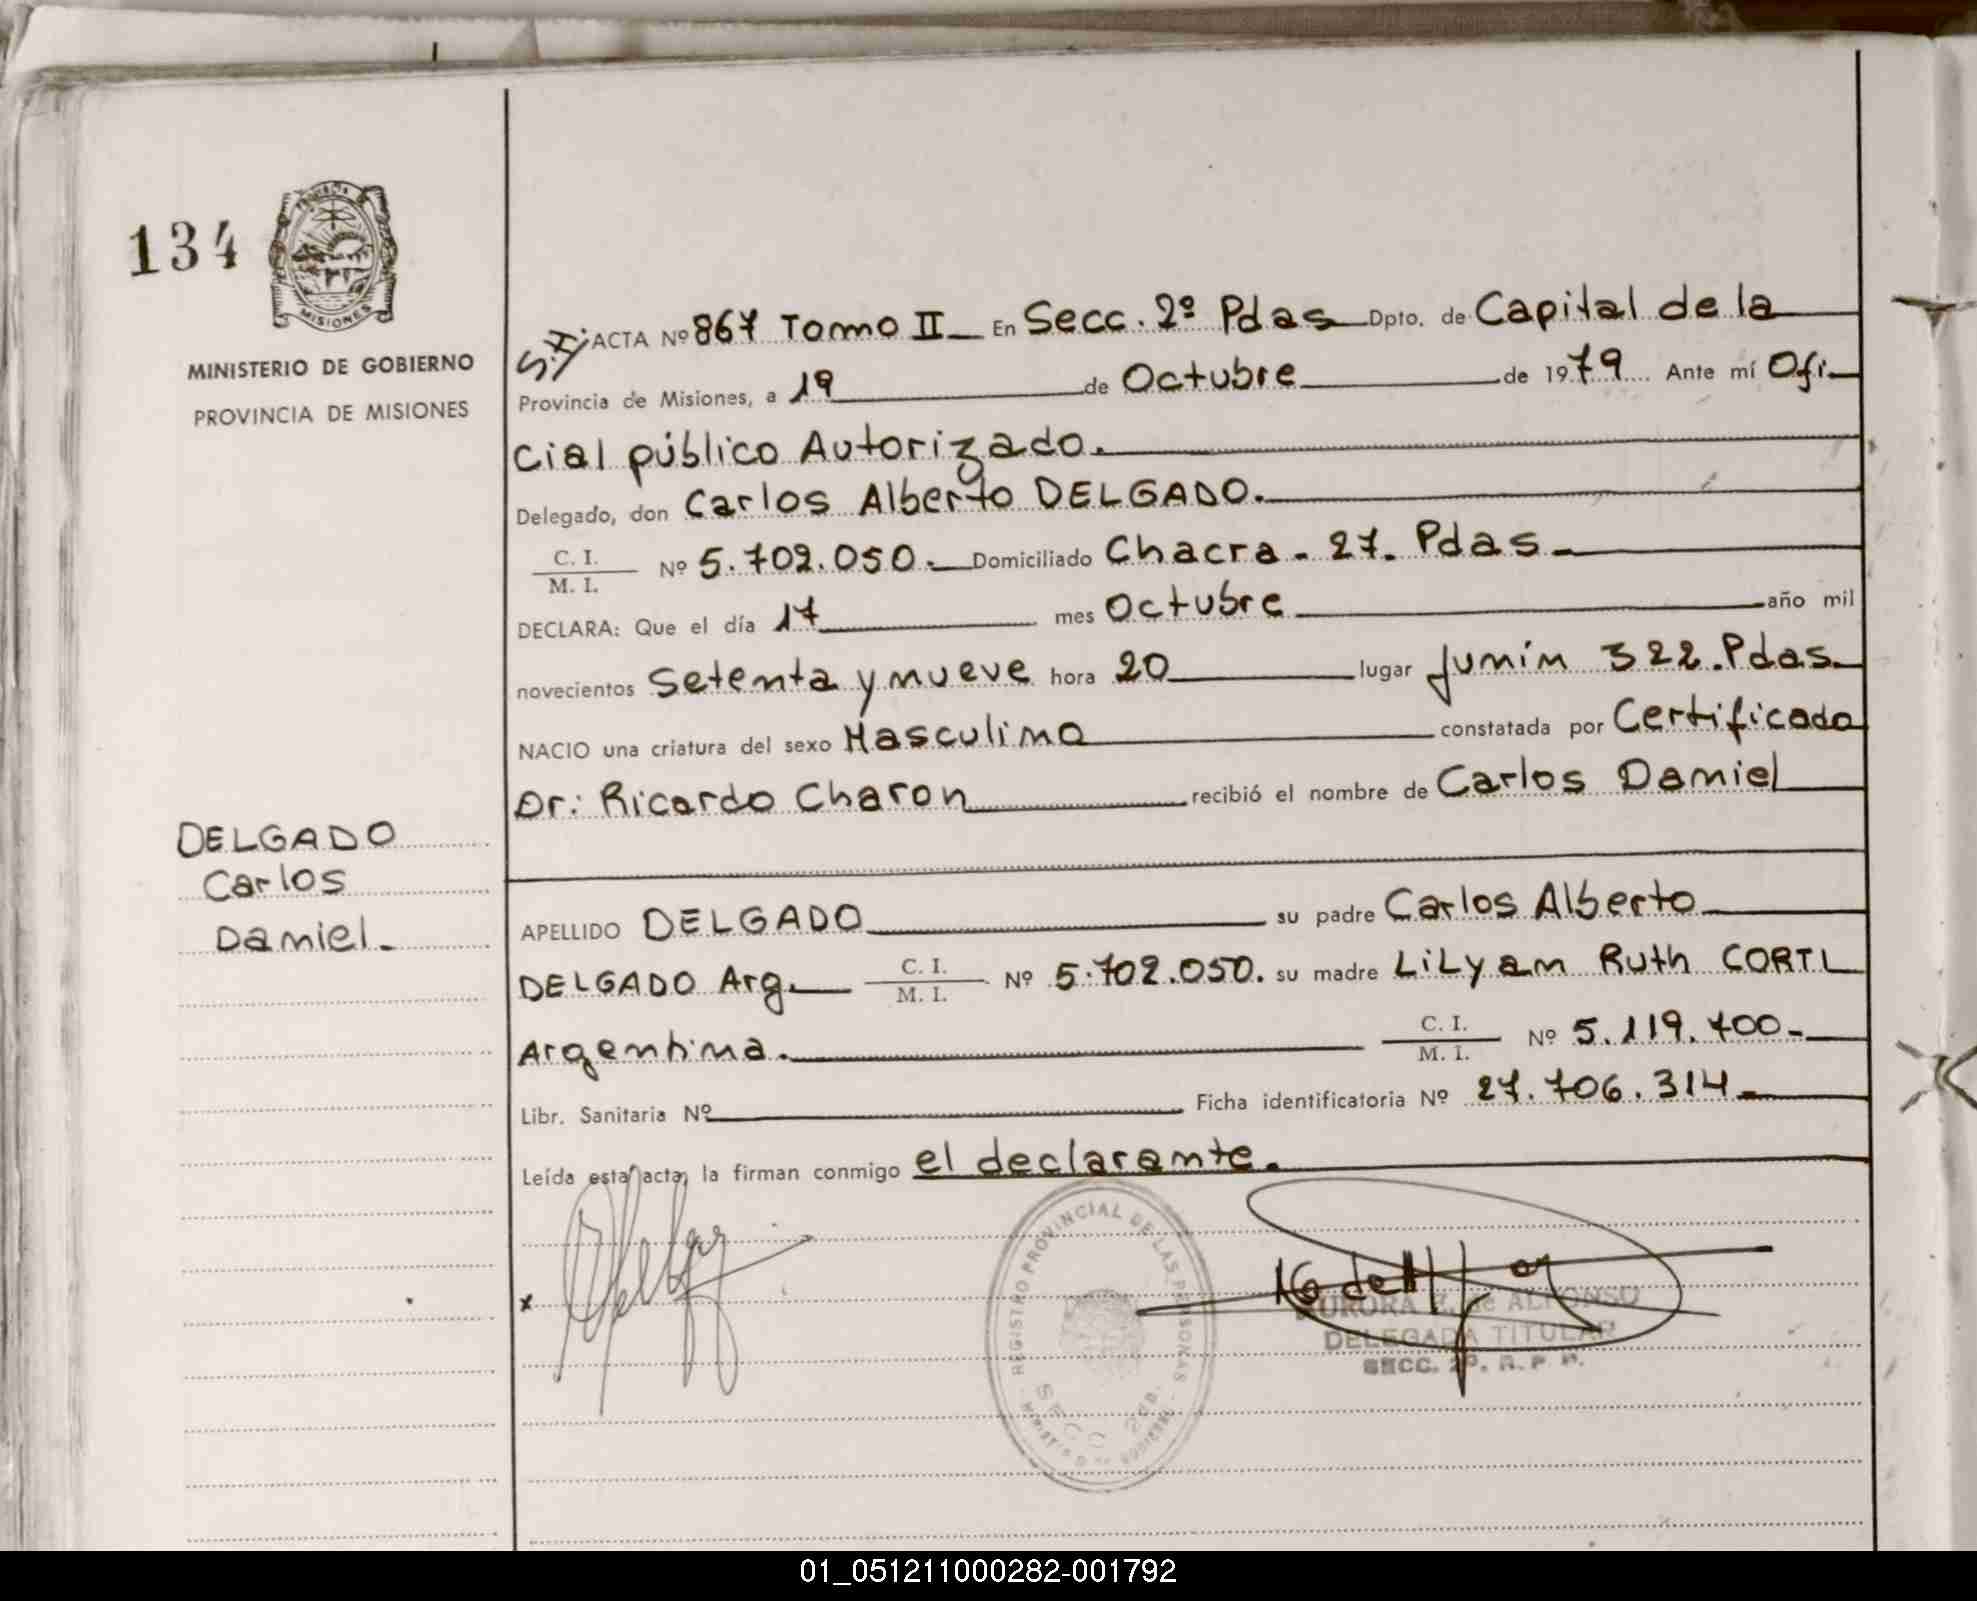 134
MISIONES
MINISTERIO DE GOBIERNO
PROVINCIA DE MISIONES
DELGADO
Carlos
Daniel.
S.I/ ACTA Nº 867 Tomo II En Secc. 2º Pdas Dpto. de Capital de la
Provincia de Misiones, a 19 de Octubre de 1979 Ante mí Ofi
cial público Autorizado.
Delegado, don Carlos Alberto DELGADO.
C. I.
M. I. Nº 5.702.050. Domiciliado Chacra - 27. Pdas
DECLARA: Que el día 17 mes Octubre año mil
novecientos setenta y nueve hora 20 lugar Junín 322. Pdas.
NACIO una criatura del sexo Masculino constatada por Certificado
Dr: Ricardo Charon recibió el nombre de Carlos Daniel
APELLIDO DELGADO su padre Carlos Alberto
DELGADO Arg. C. I. M. I. Nº 5.702.050. su madre LiLyam Ruth CORTI
Argentina. C. I. M. I. Nº 5.119.700-
Libr. Sanitaria Nº Ficha identificatoria Nº 27.706.314
Leída esta acta, la firman conmigo el declarante.
REGISTRO PROVINCIAL DE LAS PERSONAS
SECC 2da.
AURORA Z. de ALFONSO
DELEGADA TITULAR
SECC. 2ª. R. P. P.
01_051211000282-001792